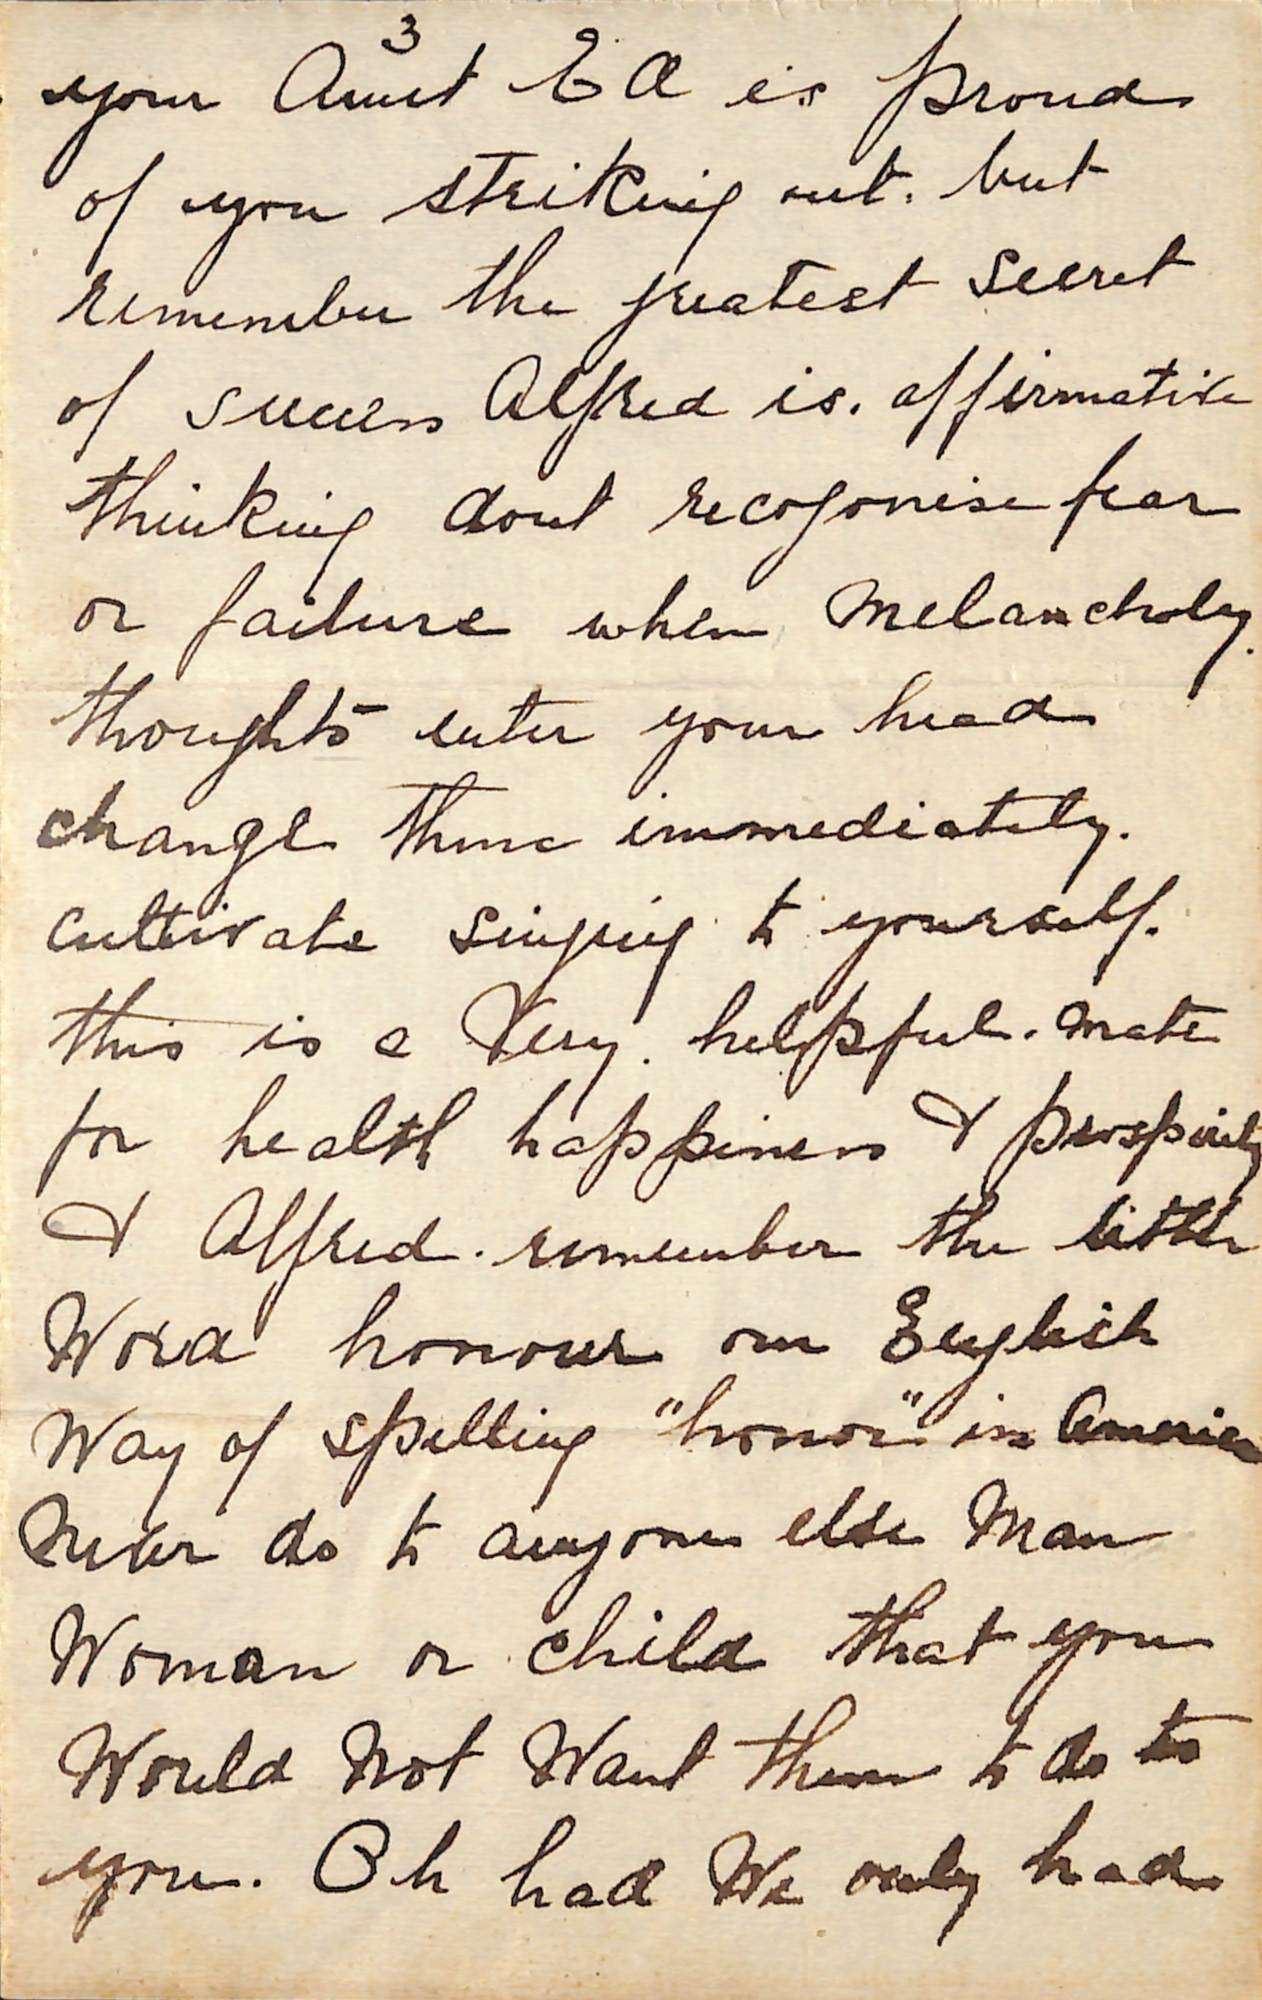 3
your Aunt E A is proud
of you striking out. but
remember the greatest secret
of success Alfred is. affirmative
thinking dont recogonise fear
or failure when Melancholy.
thoughts enter your head
change them immediately.
cultivate singing to yourself.
this is a Very. helpful. mate
for health happiness & prosperity
& Alfred. remember the little
Word honour our English
Way of spelling "honor" in America
Never do to anyone else Man
Woman or child that you
Would Not Want them to do to
you. Oh had We only had